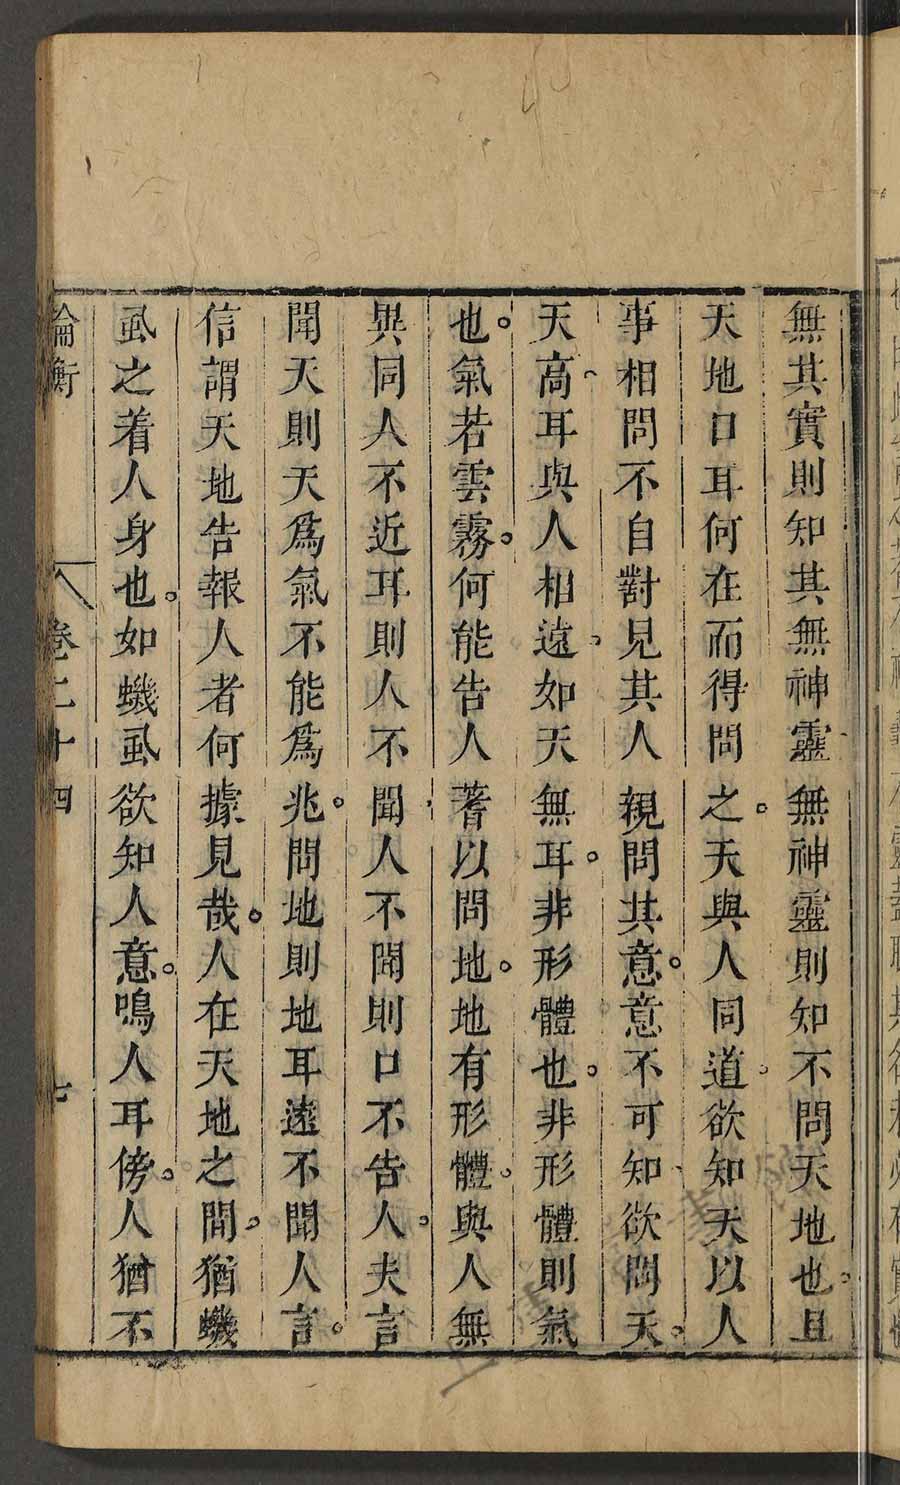 無其實則知其無神靈無神靈則知不問天地也且
天地口耳何在而得問之天與人同道欲知天以人
事相問不自對見其人親問其意意不可知欲問天
天高耳與人相遠如天無耳非形體也非形體則氣
也氣若雲霧何能告人蓍以問地地有形體與人無
異同人不近耳則人不聞人不聞則口不告人夫言
聞天則天爲氣不能爲兆問地則地耳遠不聞人言
信謂天地告報人者何據見哉人在天地之間猶蟣
虱之着人身也如蟣虱欲知人意鳴人耳傍人猶不
論衡 卷二十四 七